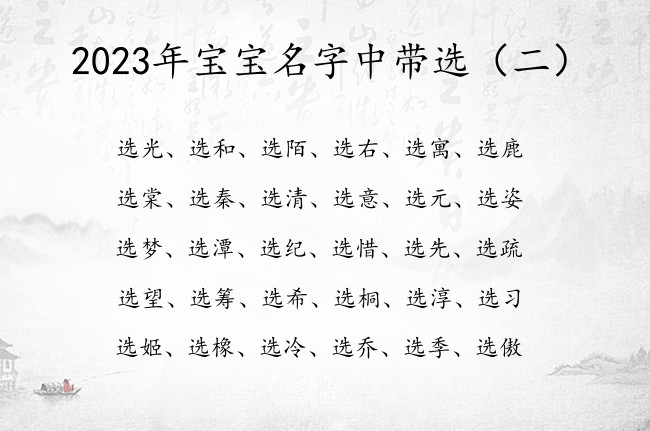 2023年宝宝名字中带选（二）
选光、选和、选陌、选右、选寓、选鹿
选棠、选秦、选清、选意、选元、选姿
选梦、选潭、选纪、选惜、选先、选疏
选望、选筹、选希、选桐、选淳、选习
选姬、选橡、选冷、选乔、选季、选傲